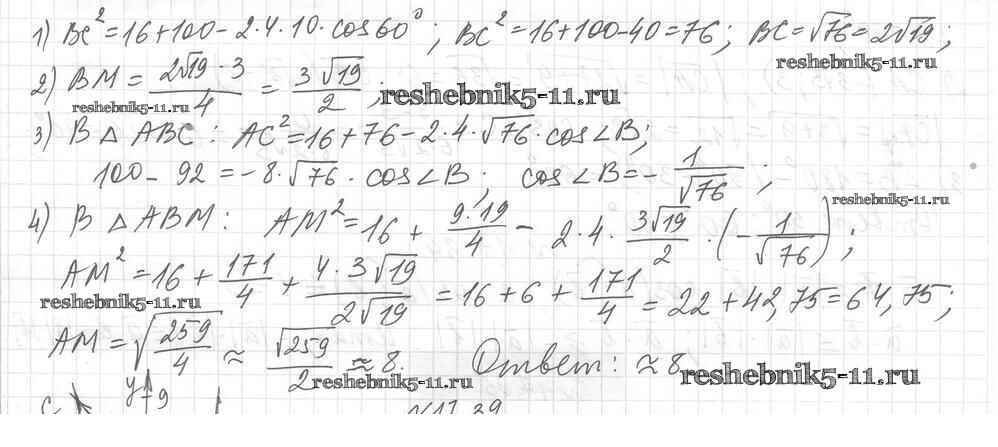 1) BC² = 16 + 100 − 2·4·10·cos60°; BC² = 16 + 100 − 40 = 76; BC = √76 = 2√19;
reshebnik5-11.ru
2) BM = (2√19·3)/4 = 3√19/2;
reshebnik5-11.ru
reshebnik5-11.ru
3) В △ ABC: AC² = 16 + 76 − 2·4·√76·cos∠B;
100 − 92 = −8·√76·cos∠B; cos∠B = −1/√76;
reshebnik5-11.ru
4) В △ ABM: AM² = 16 + 9·19/4 − 2·4·3√19/2·(−1/√76);
AM² = 16 + 171/4 + 4·3√19/2√19 = 16 + 6 + 171/4 = 22 + 42,75 = 64,75;
reshebnik5-11.ru
AM = √(259/4) ≈ √259/2 ≈ 8. Ответ: ≈ 8
reshebnik5-11.ru
reshebnik5-11.ru